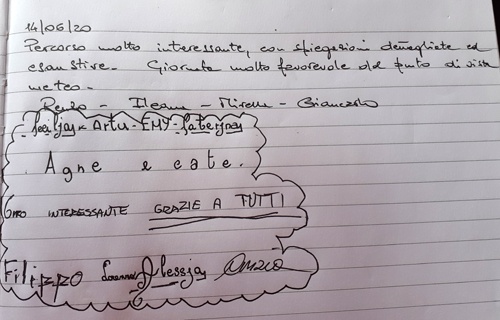 14/06/20
Percorso molto interessante, con spiegazioni dettagliate ed
esaustive. Giornata molto favorevole dal punto di vista
meteo.
Renzo - Ileana - Mirella - Giancarlo
Artu - EMY -
Agne e cate.
GIRO INTERESSANTE GRAZIE A TUTTI
Filippo Alessja